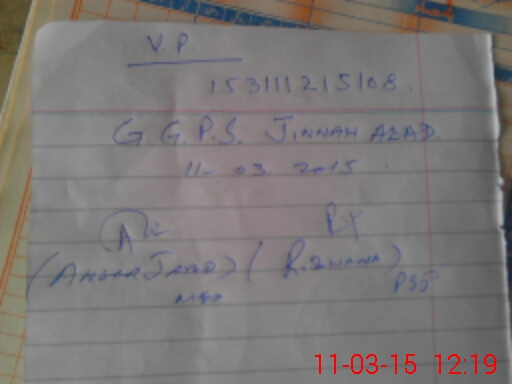 V P
153111215108.
G.G.P.S. JINNAH AZAD.
11-03 2015
(AMBAR JAVED) (RIZWANA)
PSJ
11-03-15 12:19